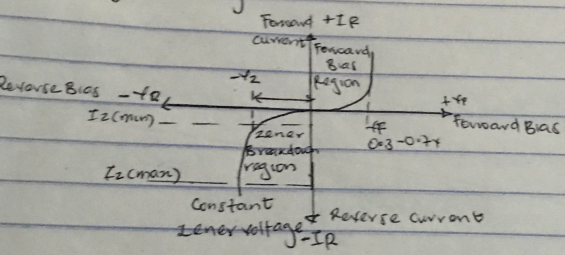 Forward +IR
Current
Forward
Bias
Region
-Vz
Reverse Bias -VR
+VF
Forward Bias
Iz(min)
VF
0.3-0.7V
Zener
Breakdown
region
Iz(max)
Constant
Zener voltage
Reverse Current
-IR